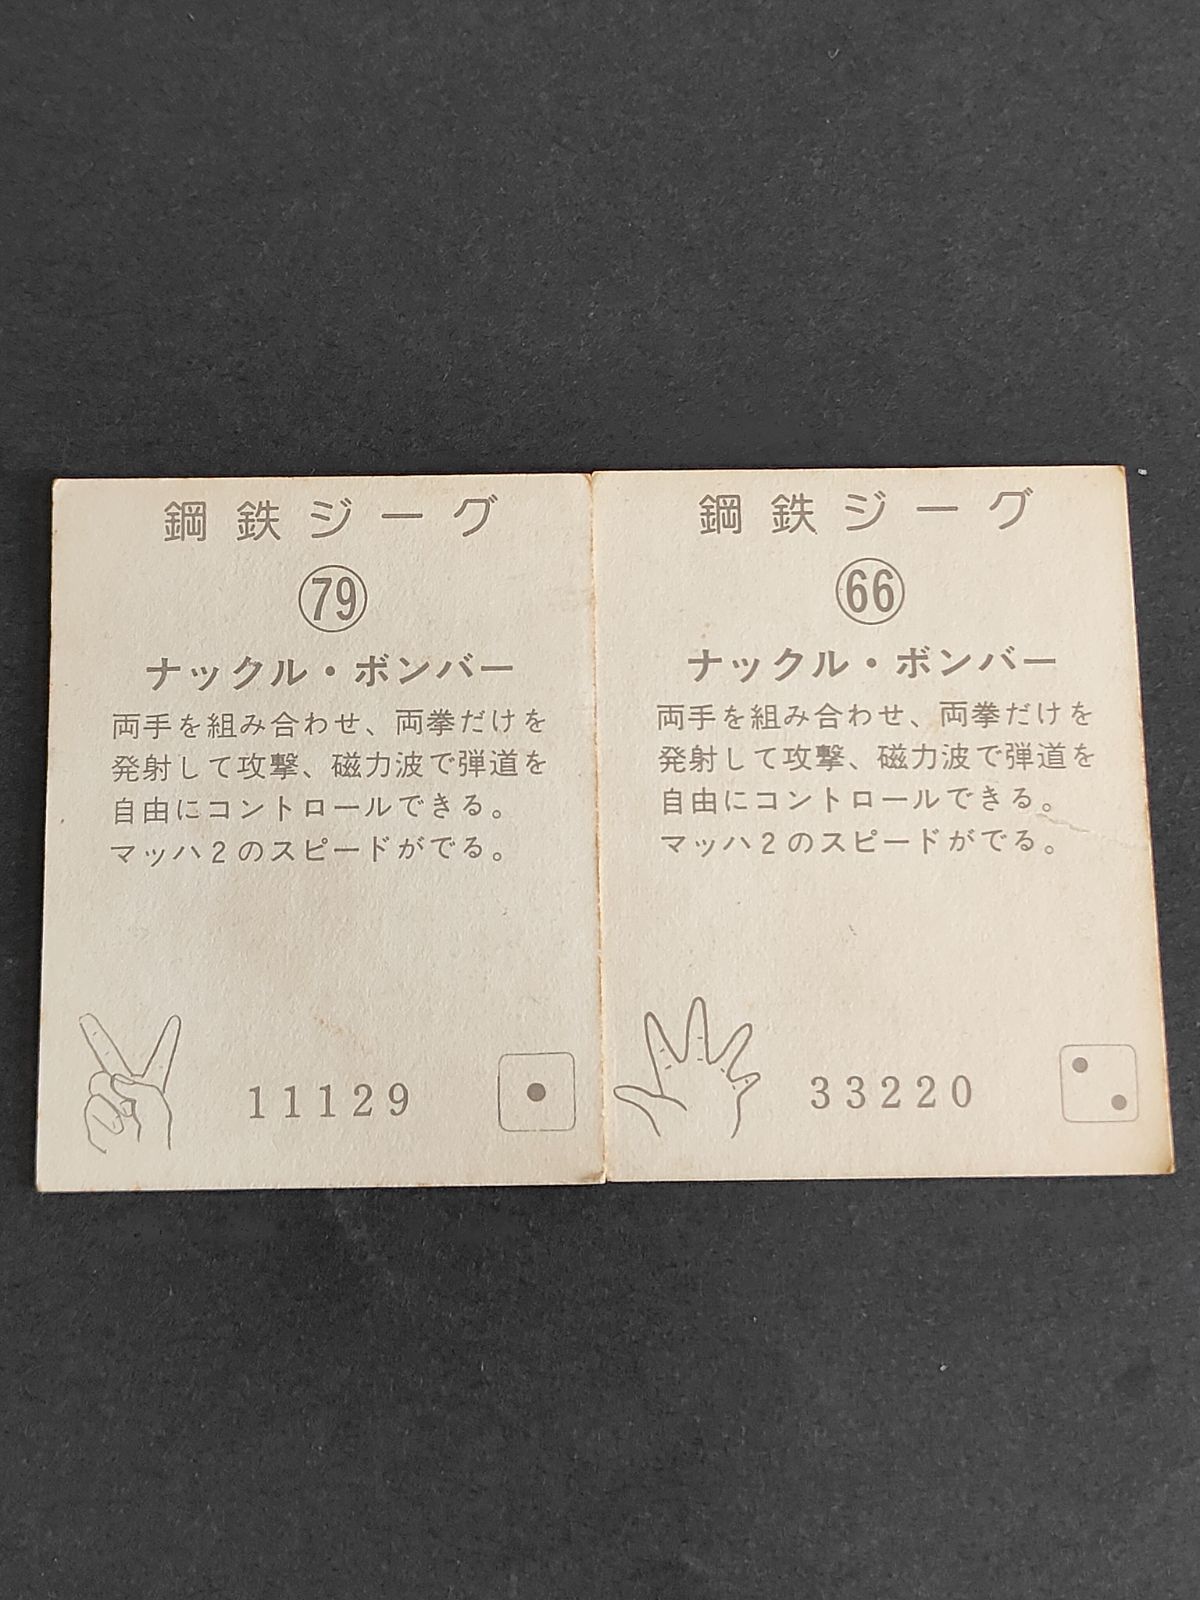 鋼鉄ジーグ
79
ナックル・ボンバー
両手を組み合わせ、両拳だけを
発射して攻撃、磁力波で弾道を
自由にコントロールできる。
マッハ2のスピードがでる。
11129
鋼鉄ジーグ
66
ナックル・ボンバー
両手を組み合わせ、両拳だけを
発射して攻撃、磁力波で弾道を
自由にコントロールできる。
マッハ2のスピードがでる。
33220